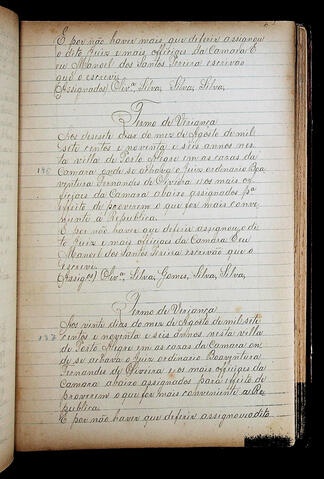 E por não haver mais que deferir assignou
o dito Juiz e mais officiaes da Camara E
eu Manoel dos Santos Pereira escrivão
que o escrevi.
(Assignados) Olivrª, Silva, Silva, Silva,
Termo de Veriança
Aos desesete dias do mez de Agosto de mil
sete centos e noventa e seis annos nes
ta villa de Porto Alegre em as casas da
Camara onde se achava o Juiz ordinario Boa
ventura Fernandes de Oliveira e os mais of
ficiaes da Camara abaixo assignados pª
effeito de proverem o que for mais conve
niente á Republica.
E por não haver que deferir assignou o di
to Juiz e mais officiaes da Camara E eu
Manoel dos Santos Pereira escrivão que o
escrevi.
(Assigos) Olivrª, Silva, Gomes, Silva, Silva,
Termo de Veriança
137
Aos vinte dias do mez de Agosto de mil sete
centos e noventa e seis annos nesta villa
de Porto Alegre em as casas da Camara on
de se achava o Juiz ordinario Boaventura
Fernandes de Oliveira e os mais officiaes da
Camara abaixo assignados para effeito de
proverem o que for mais conveniente a Re
publica.
E por não haver que deferir assignou o dito